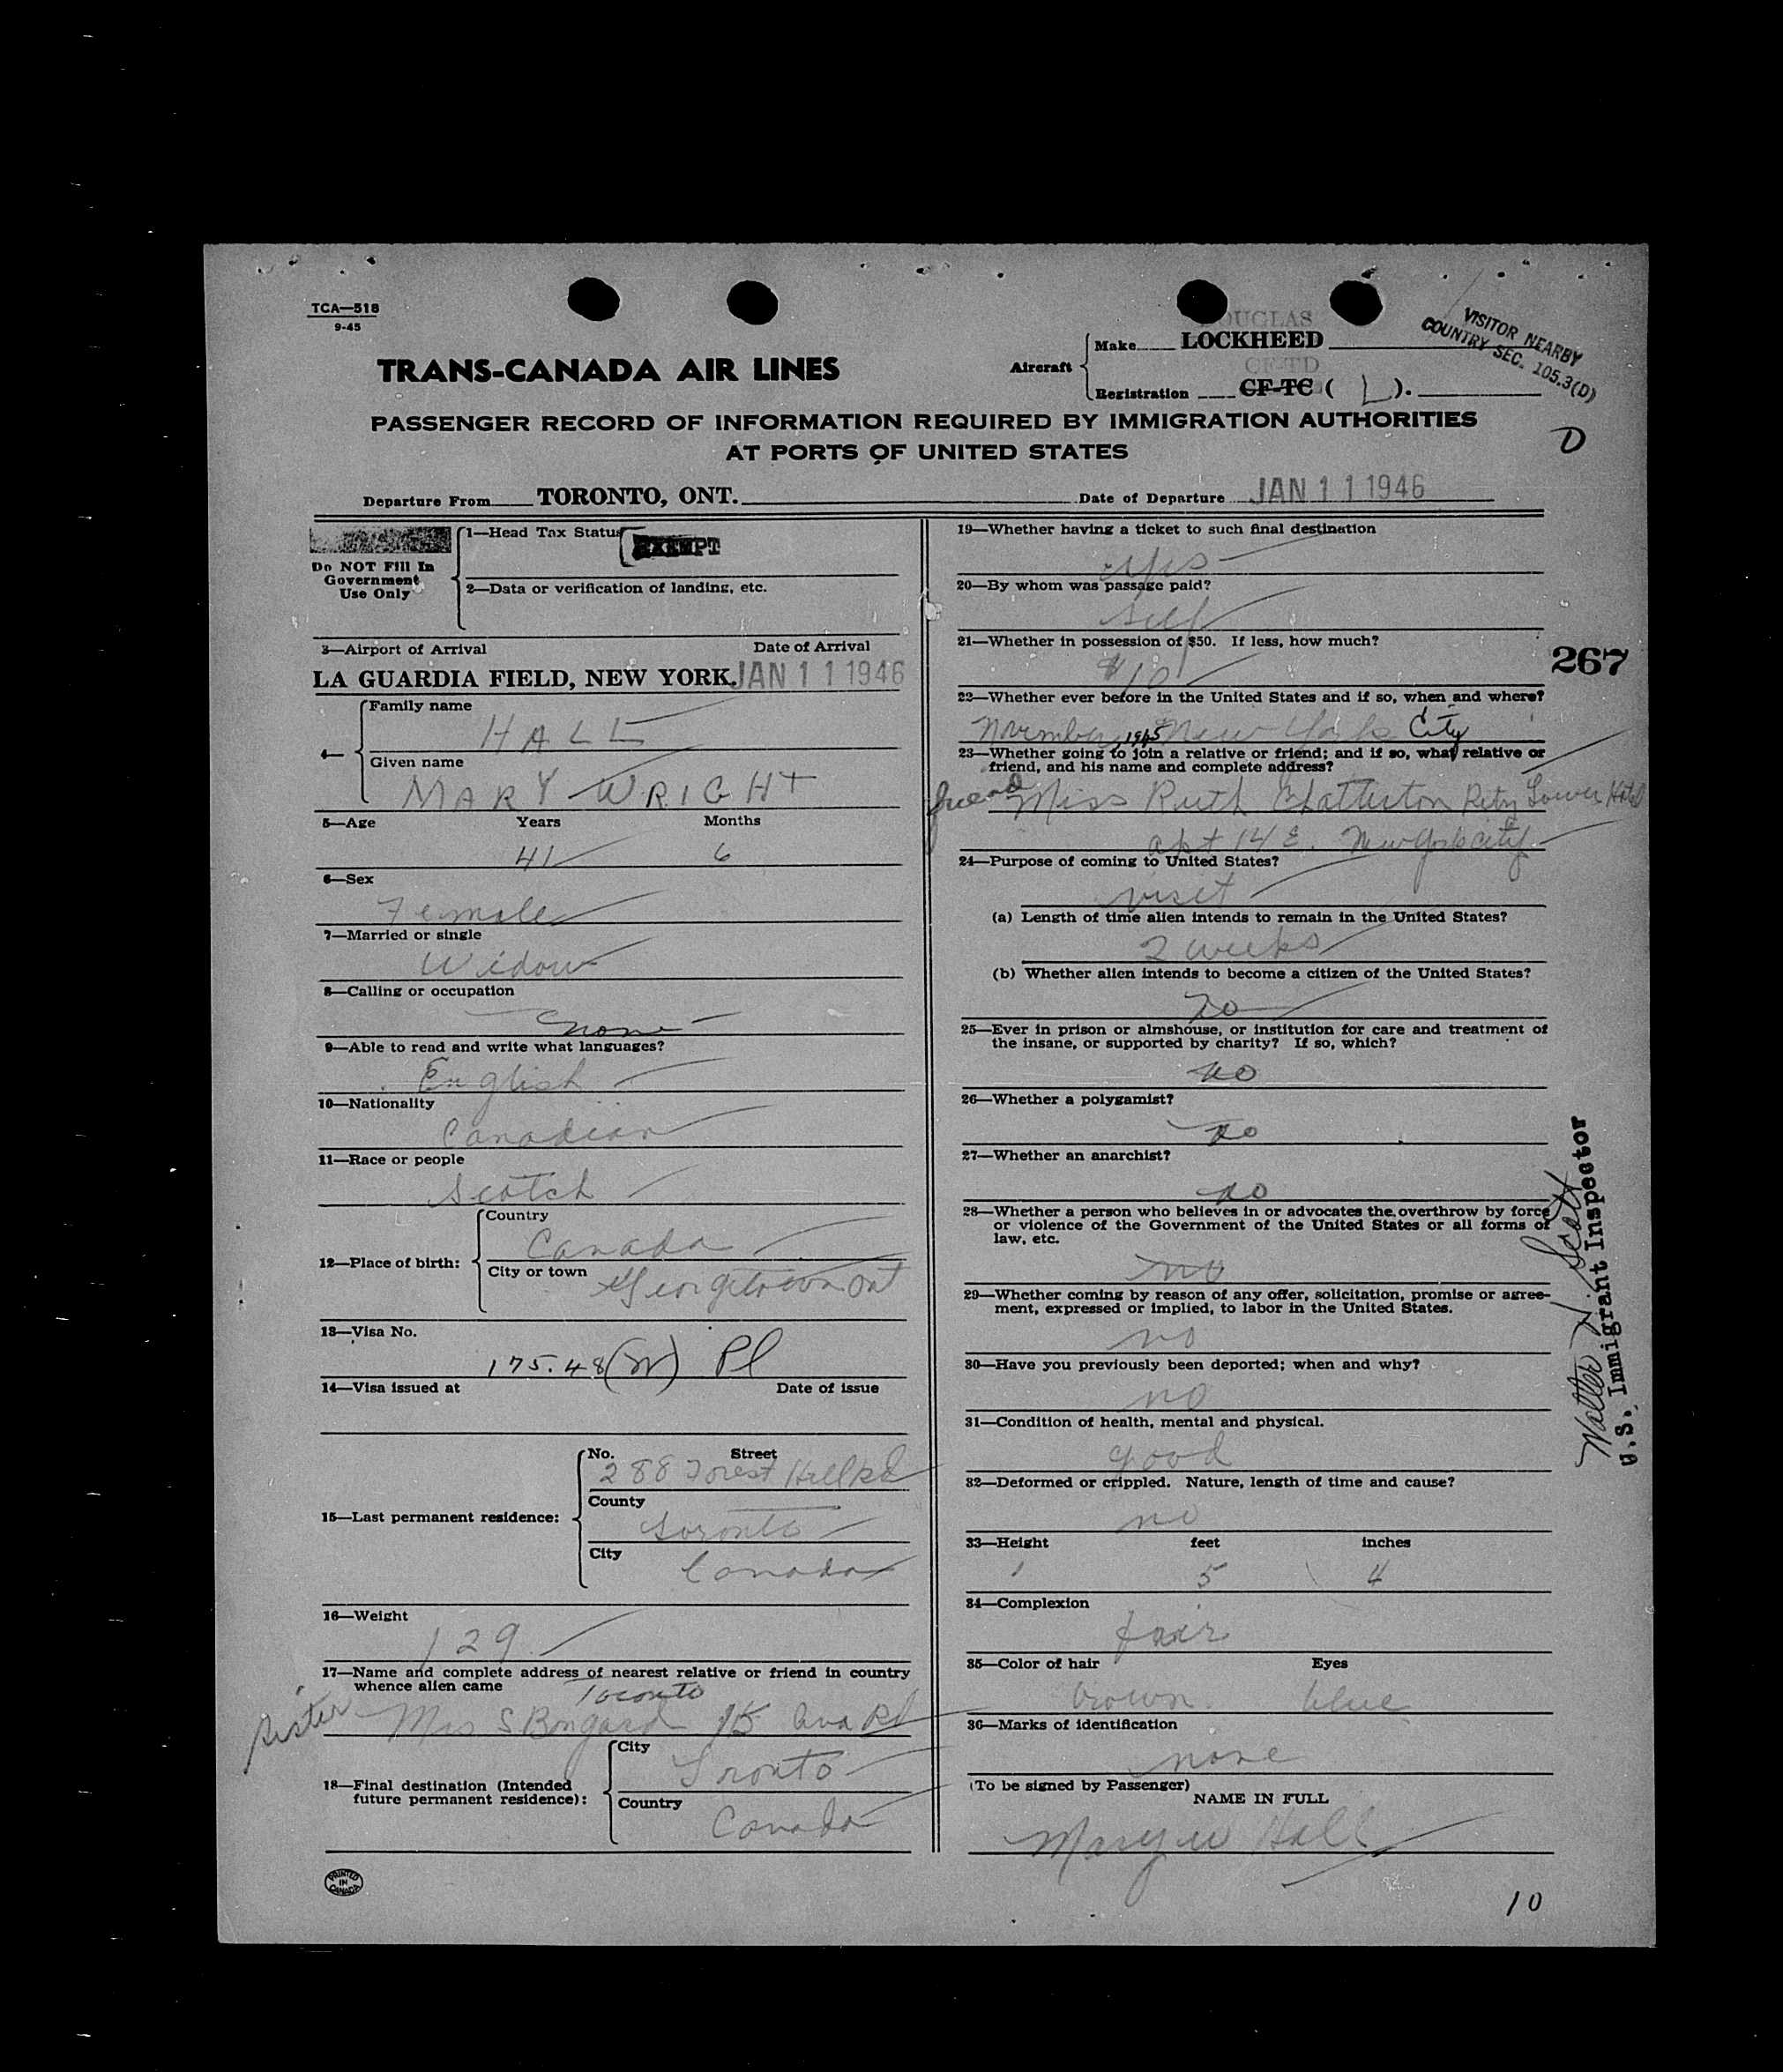 TCA—518
9-45
DOUGLAS
Make LOCKHEED
Aircraft
CF-TD
Registration CF-TC ( L ).
VISITOR NEARBY
COUNTRY SEC. 105.3(D)
TRANS-CANADA AIR LINES
PASSENGER RECORD OF INFORMATION REQUIRED BY IMMIGRATION AUTHORITIES
AT PORTS OF UNITED STATES
D
Departure From TORONTO, ONT. Date of Departure JAN 11 1946
Do NOT Fill In
Government
Use Only
1—Head Tax Status EXEMPT
2—Data or verification of landing, etc.
3—Airport of Arrival Date of Arrival
LA GUARDIA FIELD, NEW YORK. JAN 11 1946
4—
Family name
HALL
Given name
MARY WRIGHT
5—Age Years Months
41 6
6—Sex
Female
7—Married or single
Widow
8—Calling or occupation
none
9—Able to read and write what languages?
English
10—Nationality
Canadian
11—Race or people
Scotch
12—Place of birth:
Country
Canada
City or town
Georgetown Ont
13—Visa No.
175.48(W) Pl
14—Visa issued at Date of issue
15—Last permanent residence:
No. Street
288 Forest Hill Rd
County
Toronto
City
Canada
16—Weight
129
17—Name and complete address of nearest relative or friend in country
whence alien came
Toronto
sister Mrs S Bongard 15 Ava Rd
18—Final destination (Intended
future permanent residence):
City
Toronto
Country
Canada
PRINTED
IN
CANADA
19—Whether having a ticket to such final destination
yes
20—By whom was passage paid?
self
21—Whether in possession of $50. If less, how much?
$10
267
22—Whether ever before in the United States and if so, when and where?
November 1945 New York City
23—Whether going to join a relative or friend; and if so, what relative or
friend, and his name and complete address?
friend Miss Ruth Chatterton Ritz Tower Hotel
apt 14 E. New York City
24—Purpose of coming to United States?
visit
(a) Length of time alien intends to remain in the United States?
2 weeks
(b) Whether alien intends to become a citizen of the United States?
no
25—Ever in prison or almshouse, or institution for care and treatment of
the insane, or supported by charity? If so, which?
no
26—Whether a polygamist?
no
27—Whether an anarchist?
no
28—Whether a person who believes in or advocates the overthrow by force
or violence of the Government of the United States or all forms of
law, etc.
no
29—Whether coming by reason of any offer, solicitation, promise or agree-
ment, expressed or implied, to labor in the United States.
no
30—Have you previously been deported; when and why?
no
31—Condition of health, mental and physical.
good
32—Deformed or crippled. Nature, length of time and cause?
no
33—Height feet inches
5 4
34—Complexion
fair
35—Color of hair Eyes
brown blue
36—Marks of identification
none
(To be signed by Passenger)
NAME IN FULL
Mary W Hall
Walter H. Scott
U.S. Immigrant Inspector
10